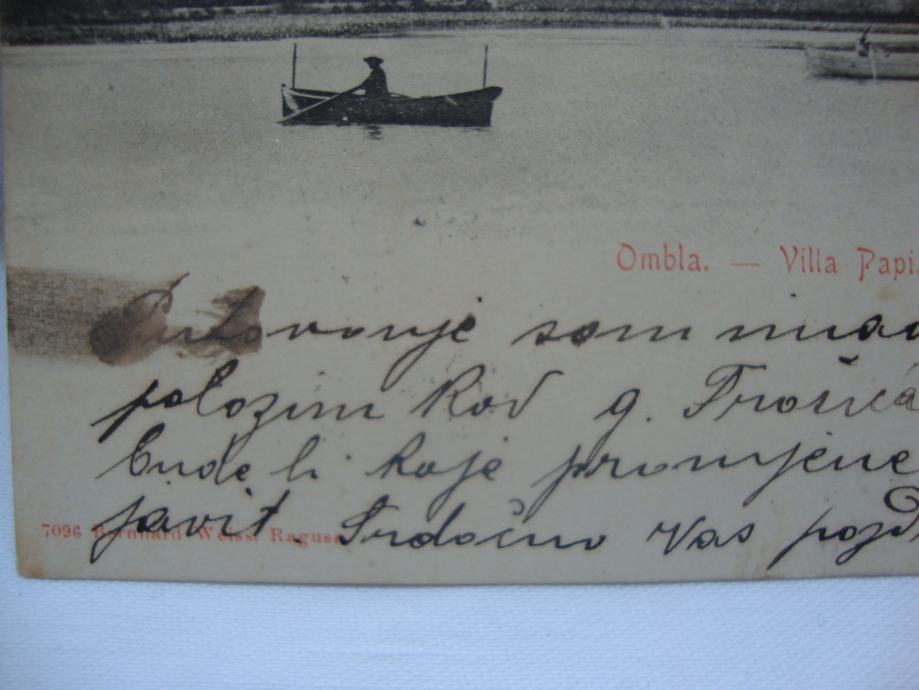 Ombla. — Villa Papi.
Putovanje sam mora
polozim kod g. Trošića
bude li koje promjene
javit Srdačno Vas pozd
7096 Bernhard Weiss. Ragusa